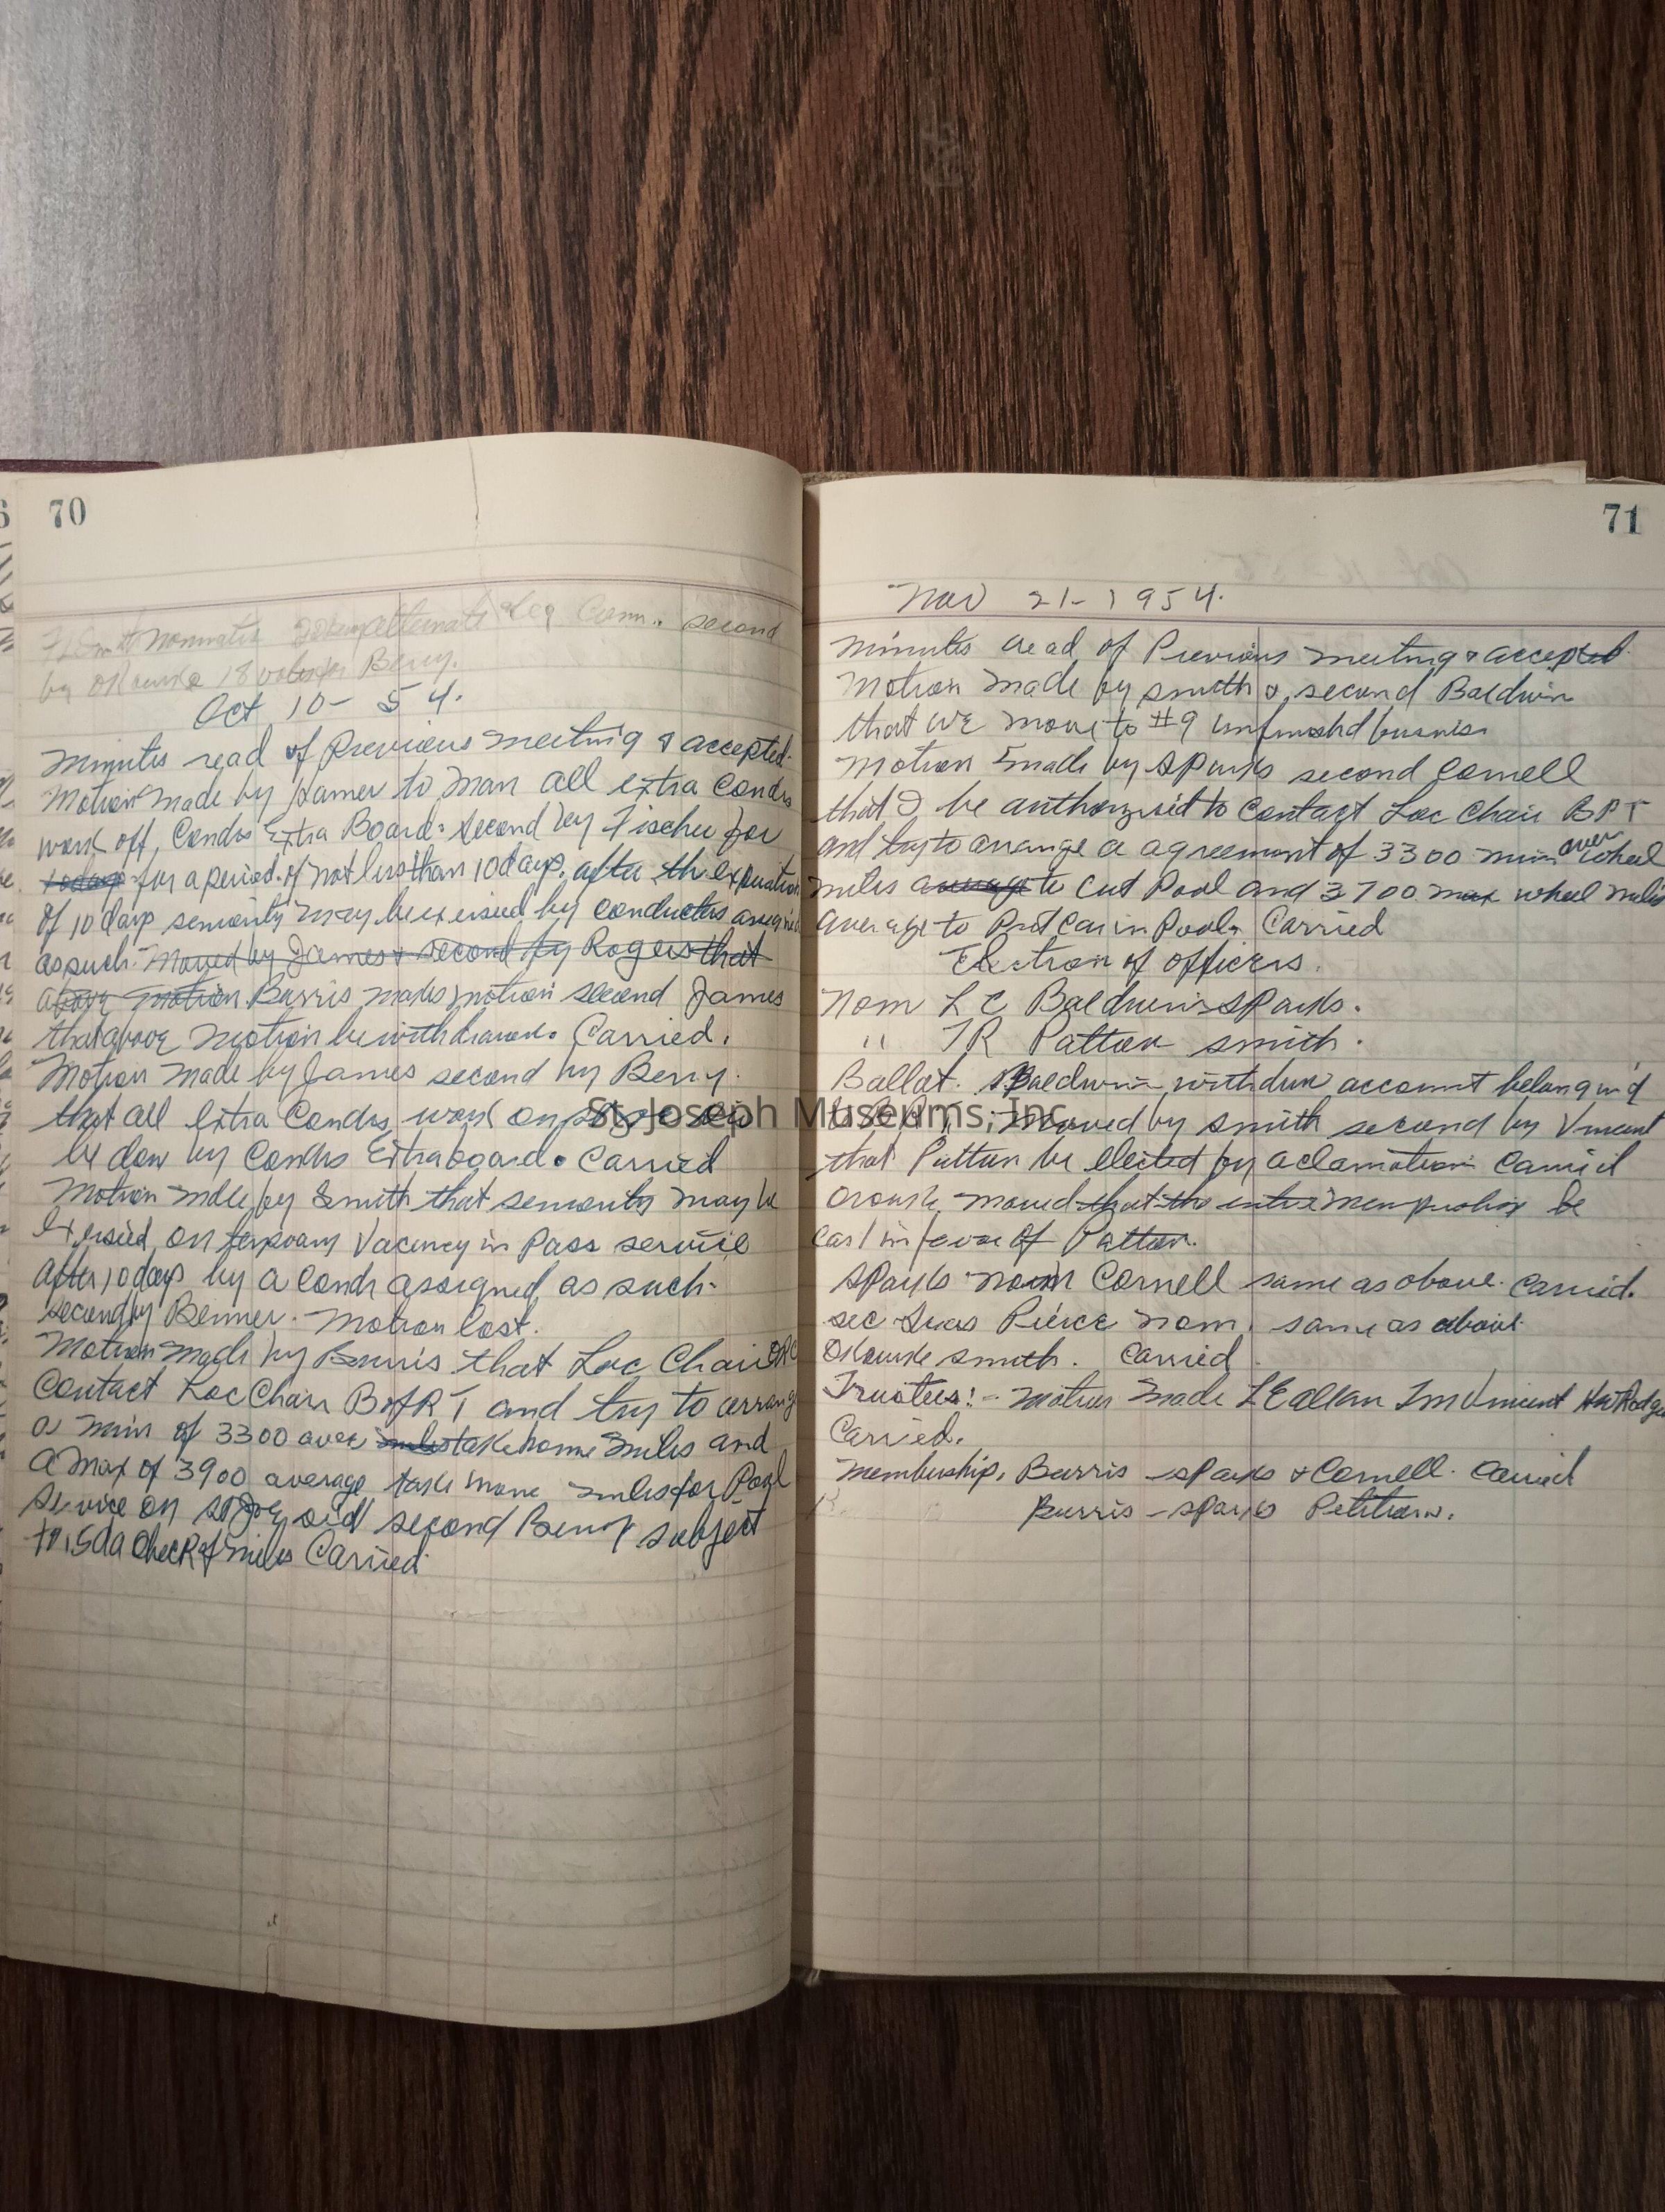 70
Smith nominates alternate Leg Comm. second
by ORourke 18 votes for Berry.
Oct 10 - 54.
Minutes read of Previous meeting & accepted.
Motion made by to man all extra Condrs
work off Condrs Extra Board. Second by Fischer for
10 days for a period of not less than 10 days. after the expiration
of 10 days seniority may be exersised by conductors assigned
as such. Moved by James & second by Rogers that
above motion. Burris makes motion second James
that above motion be withdrawn. Carried.
Motion made by James second by Berry.
that all Extra Condrs work on
be done by Condrs Extra board. Carried
Motion made by Smith that seniority may be
exersised on temporary Vacancy in Pass service
after 10 days by a Condr assigned as such.
second by Benner. Motion lost.
Motion made by Burris that Loc Chair ORC
Contact Loc Chair B of RT and try to arrange
a min of 3300 aver miles take home miles and
a max of 3900 average take home miles for Pool
service on second Berry subject
to 15 da check of miles Carried
71
Nov 21-1954.
Minutes read of Previous meeting & accepted.
Motion made by Smith &, second Baldwin
that we move to #9 unfinishd business
Motion made by Sparks second Cornell
that I be authorized to contact Loc Chair BRT
and try to arrange a agreement of 3300 min aver wheel
miles average to cut Pool and 3700 max wheel miles
average to Put Car in Pool. Carried
Election of officers.
Nom L C Baldwin Sparks.
" TR Patton Smith.
Ballat. Baldwin withdrew account belonging
Moved by Smith second by Vincent
that Patton be elected by aclamation Carried
Orourk moved that the entire membership be
cast in favor of Patton.
Sparks nom Cornell same as above. Carried.
Sec Treas Pierce nom. same as above
ORourke Smith. Carried
Trustees:- Motion made L E Allan I m Vincent HW Rodgers
Carried.
Membership, Burris - Sparks & Cornell. Carried
Burris - Sparks Petition.
St. Joseph Museums, Inc.